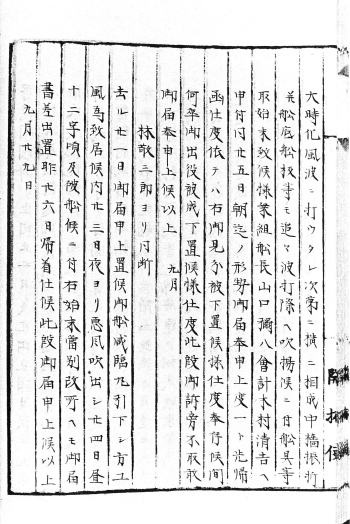 大時化風波ニ打ウタレ次第ニ損ニ相成中檣振折
其船底船板等モ追々波打際ヘ吹揚候ニ付船具等
取始末致候様業組船長山口彌八會計木村清吉ヘ
申付同廿五日朝迄ノ形勢御届奉申上度一ト先帰
函仕度依テハ右御見分被下置候様仕度奉存候間
何卒御出役被成下置候様仕度此段御訴旁不取敢
御届奉申上候以上
九月
林歌三郎ヨリ同断
去ル廿一日御届申上置候御船咸臨丸引下シ方ニ
風為致居候内廿三日夜ヨリ悪風吹出シ廿四日昼
十二字頃及破船候ニ付右始末當別改所ヘモ御届
書差出置昨廿六日帰着仕候此段御届申上候以上
九月廿九日
開拓使